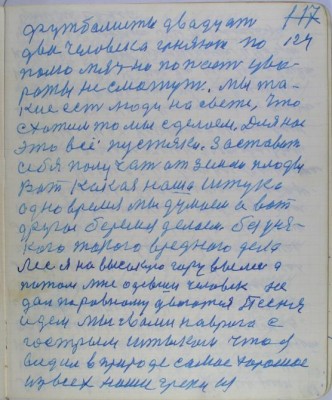 футбалисты двадцат 117
два человека гоняют по 124
полю мяч но попаст у во-
роты не смогут. Мы та-
кие ест люди на свете, что
схотим то мы сделаем. Для нас
это всё пустяки. Заставит
себя получат от земли плоды
Вот какая наша штука
одно время мы думаем а вот
другое беремя делаем без уся-
кого такого вредного дела
Лес я на высокую гору вылез а
потом мне один человек не
дал поровному двигатся Песня
идем мы с вами на врага с
острым штыком что я
видел в природе самое хорошое
из всех наши грехи и